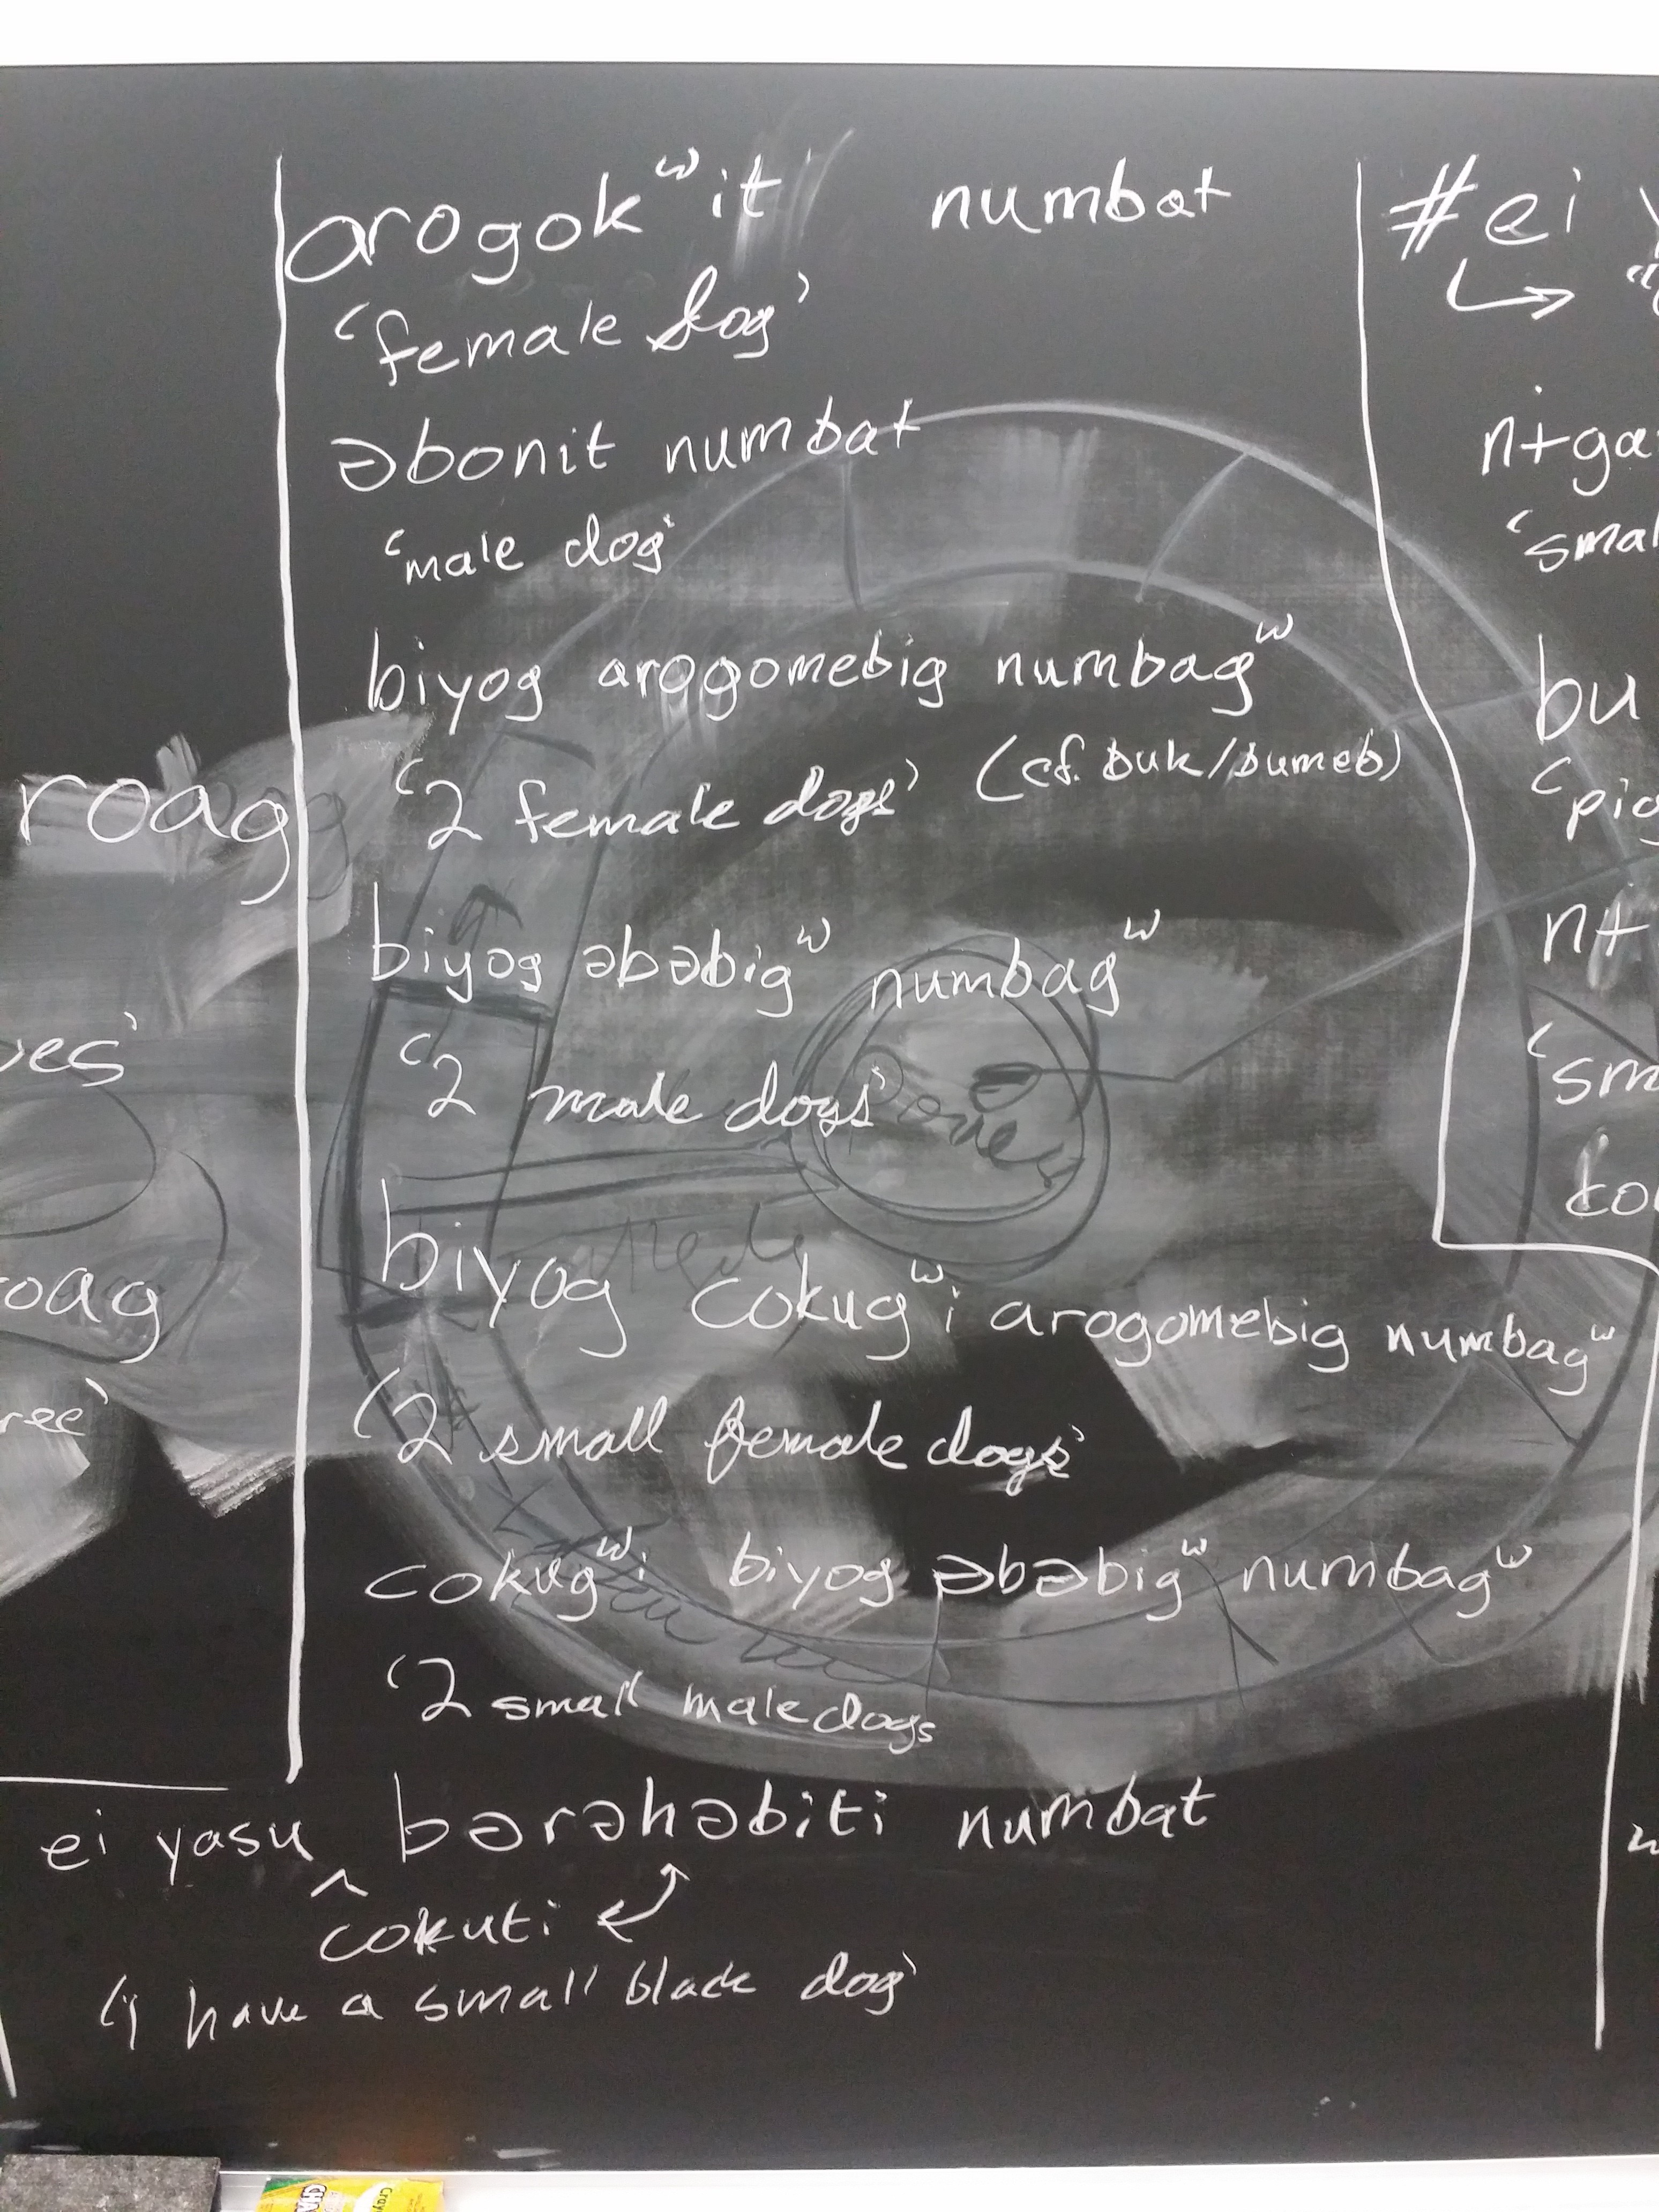 arogokʷit numbat
'female dog'
əbonit numbat
'male dog'
biyog arogomebig numbagʷ
'2 female dogs' (cf. buk/bumeb)
biyog əbəbigʷ numbagʷ
'2 male dogs'
biyog cokugʷi arogomebig numbagʷ
'2 small female dogs'
cokugʷi biyog əbəbigʷ numbagʷ
'2 small male dogs
ei yasu bərəhəbiti numbat
^
cokuti
'I have a small black dog'
roag
ves'
oag
ree'
#ei
n+ga
'smal
bu
'pig
n+
'sm